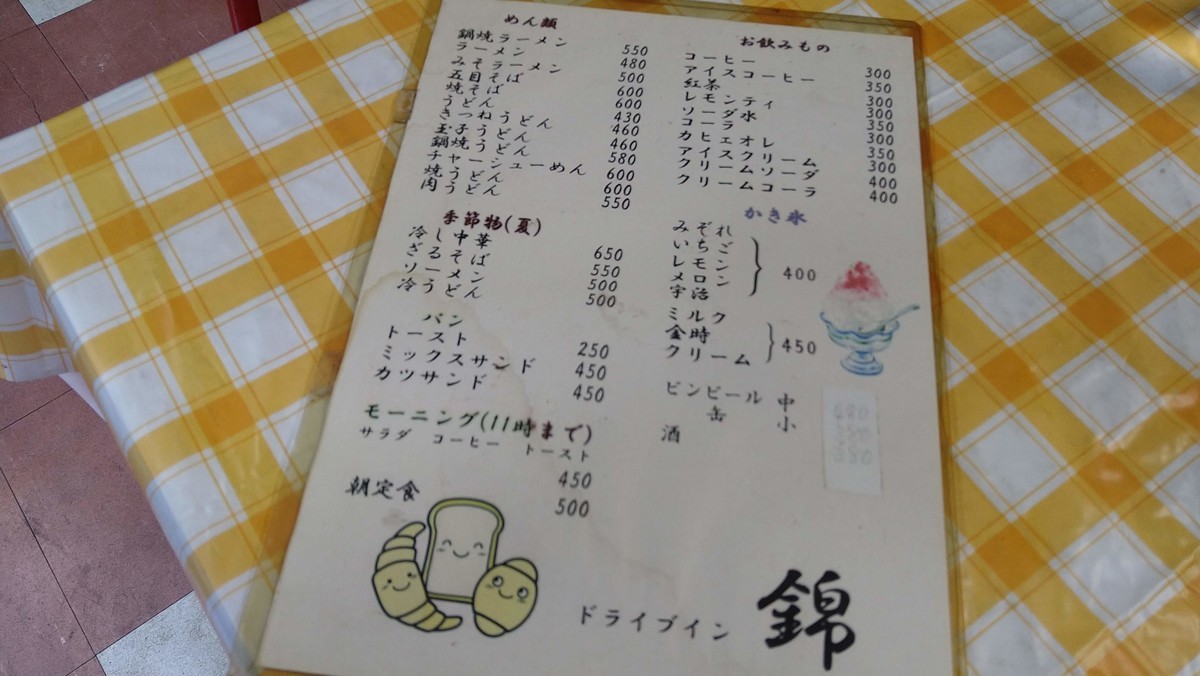 めん類
鍋焼ラーメン 550
ラーメン 480
みそラーメン 500
五目そば 600
焼そば 600
うどん 430
きつねうどん 460
玉子うどん 460
鍋焼うどん 580
チャーシューめん 600
焼うどん 600
肉うどん 550
季節物(夏)
冷し中華 650
ざるそば 550
ソーメン 500
冷うどん 500
パン
トースト 250
ミックスサンド 450
カツサンド 450
モーニング(11時まで)
サラダ コーヒー トースト
450
朝定食 500
お飲みもの
コーヒー 300
アイスコーヒー 350
紅茶 300
レモンティ 300
ソーダ水 350
コーラ 300
カヒェオレ 350
アイスクリーム 300
クリームソーダ 400
クリームコーラ 400
かき氷
みぞれ
いちご
レモン 400
メロン
宇治
ミルク
金時 450
クリーム
ビンビール 中
缶 小
酒
ドライブイン 錦